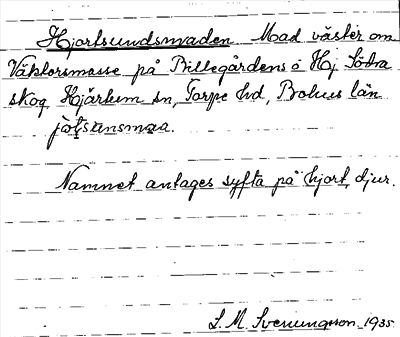 Hjortsundsmaden Mad väster om
Väktorsmosse på Billegårdens o Hj Södra
skog Hjärtum sn, Torpe hd, Bohus län
Namnet antages syfta på hjort, djur.
S. M. Svenungsson 1935